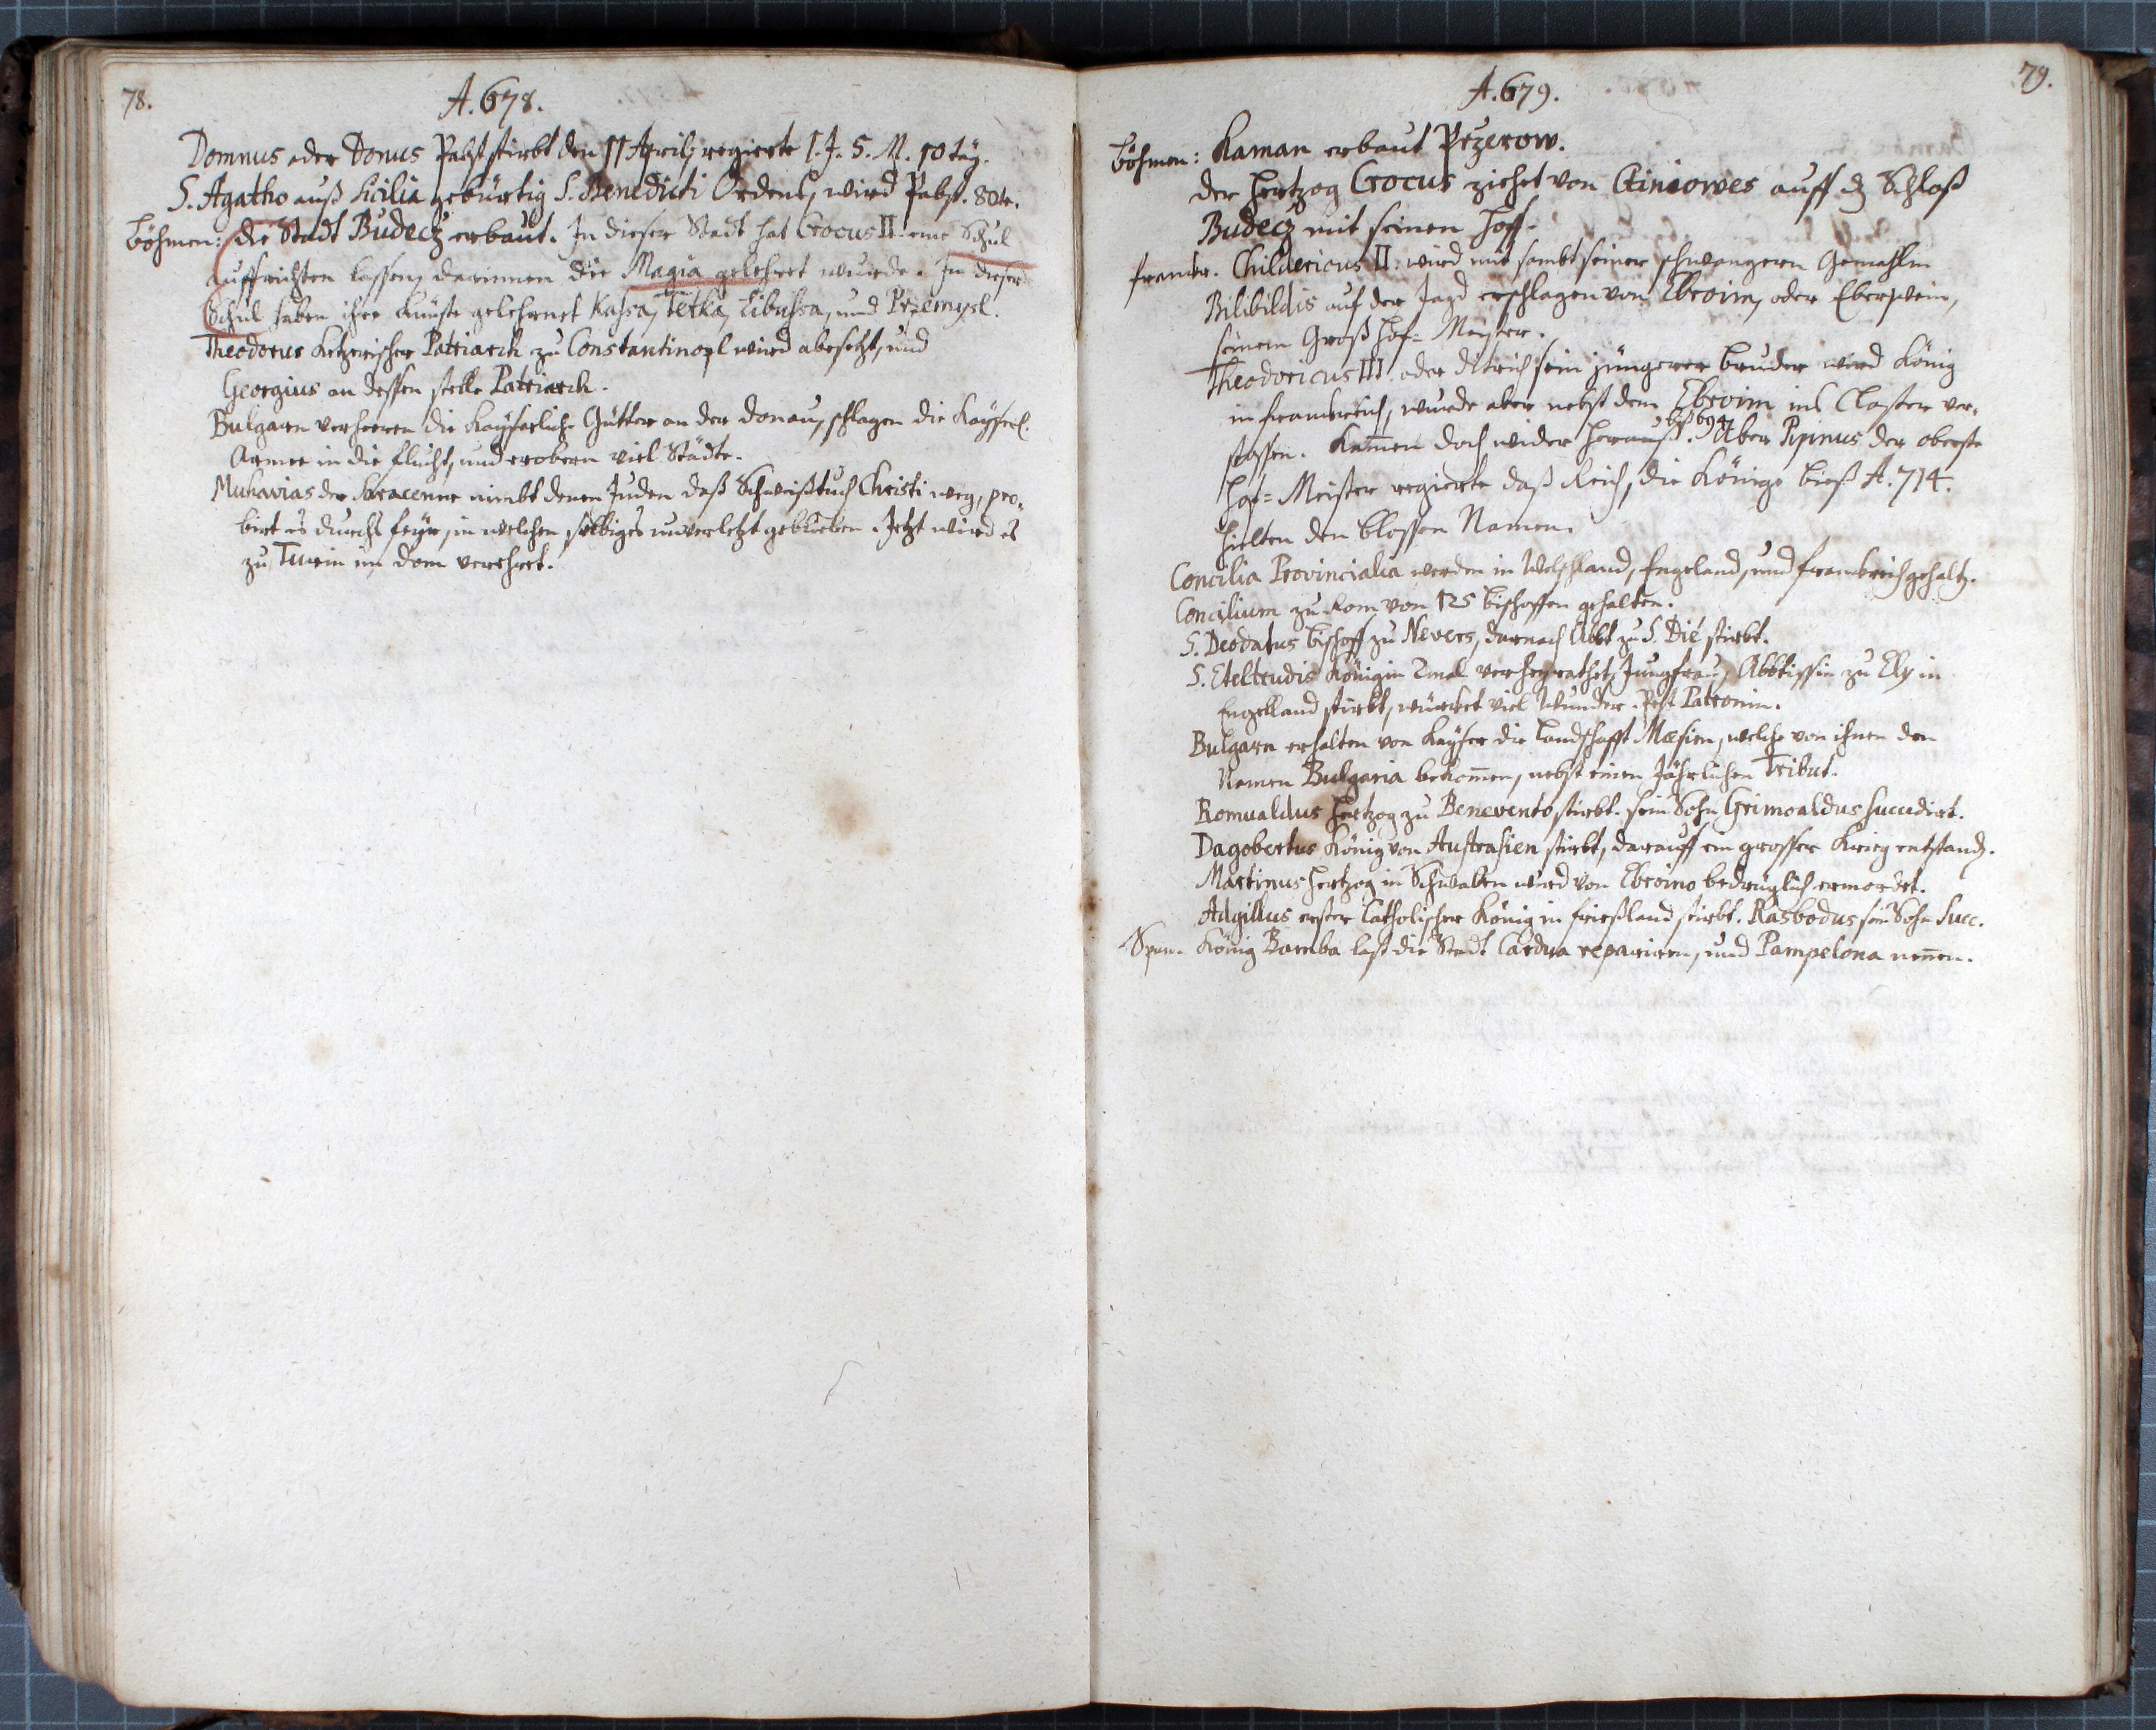 78.
A. 678.
Domnus oder Donus Pabst stirbt den 11 April, regierte 1. J. 5. M. 10 täg.
S. Agatho auß Sicilia gebürtig S. Benedicti Ordens, wird Pabst. 80te.
Böhmen: die Stadt Budecž erbaut. In dieser Stadt hat Crocus II. eine Schul
auffrichten lassen, darinnen die Magia gelehret wurde. In dieser
Schul haben ihre Künste gelehrnet Kassa, Tetka, Libussa, und Přemysl.
Theodorus ketzerischer Patriarch zu Constantinopl wird abesetzt, und
Georgius an dessen stelle Patriarch.
Bulgarn verheeren die Kayserliche Gütter an der Donau, schlagen die Kayserl.
Armee in die flucht, und erobern viel Städte.
Muhavias der Saracener nimbt denen Juden daß Schweißtuch Christi weg, pro-
birt es durchs feyr, in welchen selbiges unverletzt geblieben. Jetzt wird es
zu Turin im dom verehret.
A. 679.
79.
Böhmen: Kaman erbaut Přzerow.
der Hertzog Crocus ziehet von auff dz Schloß
Budecž mit seinen Hoff.
frankr. Childericus II. wird mit sambt seiner schwangern Gemahlin
Bilibildis auf der Jagd erschlagen von Ebroim, oder Eberwein,
seinem Groß Hof-Meister.
Theodoricus III. oder ditrich sein jüngerer bruder wird König
in frankreich, wurde aber nebst dem Ebroim ins Closter ver-
stossen. Kamen doch wider herauß. biß 694. Aber Pipinus der oberste
Hof-Meister regierte daß Reich, die Könige bieß A. 714.
hielten den blossen Namen.
Concilia Provincialia werden in Welschland, Engeland, und frankreich gehalt.
Concilium zu Rom von 125 bischoffen gehalten.
S. Deodatus bischoff zu Nevers, darnach Abbt zu S. Dié stirbt.
S. Eteltrudis Königin 2mal verheyrathet, Jungfrau, Abbtissin zu Ely in
Engelland stirbt, würcket viel Wunder. Pest Patronin.
Bulgarn erhalten von Kayser die Landschafft Mæsien, welche von ihnen den
Namen Bulgaria bekomen, nebst einen Jährlichen Tribut.
Romualdus Hertzog zu Benevento stirbt. sein Sohn Grimoaldus succedirt.
Dagobertus König von Austrasien stirbt, darauff ein grosser Krieg entstand.
Martinus Hertzog in Schwaben wird von Ebroino bedrüglich ermordet.
Adgillus erster Catholischer König in frießland stirbt. Rasbodus sein Sohn Succ.
Span. König Bamba last die Stadt Cardua repariren, und Pampelona nenen.